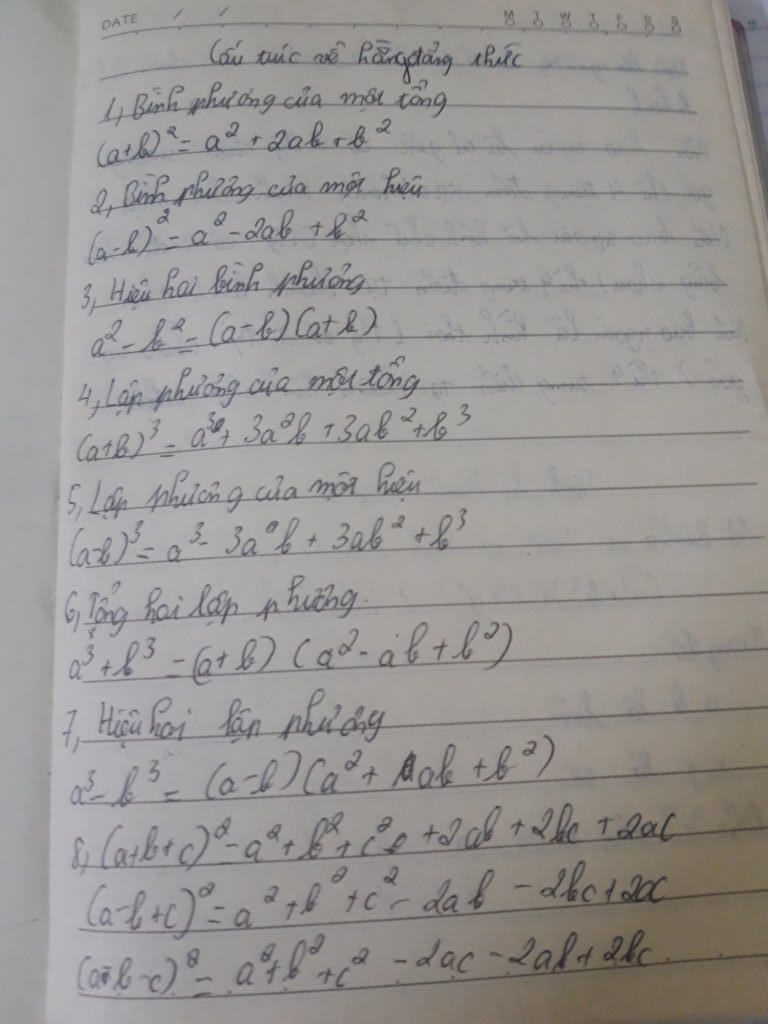 DATE / /
M T W T F S S
Cấu trúc về hằng đẳng thức
1, Bình phương của một tổng
(a+b)² = a² + 2ab + b²
2, Bình phương của một hiệu
(a-b)² = a² - 2ab + b²
3, Hiệu hai bình phương
a² - b² = (a-b)(a+b)
4, Lập phương của một tổng
(a+b)³ = a³ + 3a²b + 3ab² + b³
5, Lập phương của một hiệu
(a-b)³ = a³ - 3a²b + 3ab² + b³
6, Tổng hai lập phương.
a³ + b³ = (a+b) (a² - ab + b²)
7, Hiệu hai lập phương
a³ - b³ = (a-b) (a² + ab + b²)
8, (a+b+c)² = a² + b² + c² + 2ab + 2bc + 2ac
(a-b+c)² = a² + b² + c² - 2ab - 2bc + 2ac
(a-b-c)² = a² + b² + c² - 2ac - 2ab + 2bc